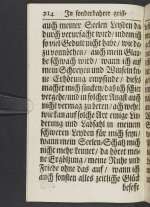 214 In sonderbahrer geist-
auch meiner Seelen Leyden da-
durch verursacht wird/ indem ich
so viel Gedult nicht habe/ wie da-
zu vonnöthen/ auch mein Glau-
be schwach wird/ wann ich auf
mein Schreyen und Winseln kei-
ne Erhörung empfinde/ dieß
machet mich finden/ daß ich schier
vergehe/ und in solcher Angst auch
nicht vermag zu beten/ ach wehe!
wie kan auf solche Art einige Lin-
derung und Labsahl in meinem
schweren Leyden für mich seyn/
wann mein Seelen-Schatz mich
nicht mehr kennet/ da höret mei-
ne Ergötzung/ meine Ruhe und
Friede ohne das auf/ wann ich
auch sonsten alles zeitliche Glück
besesse